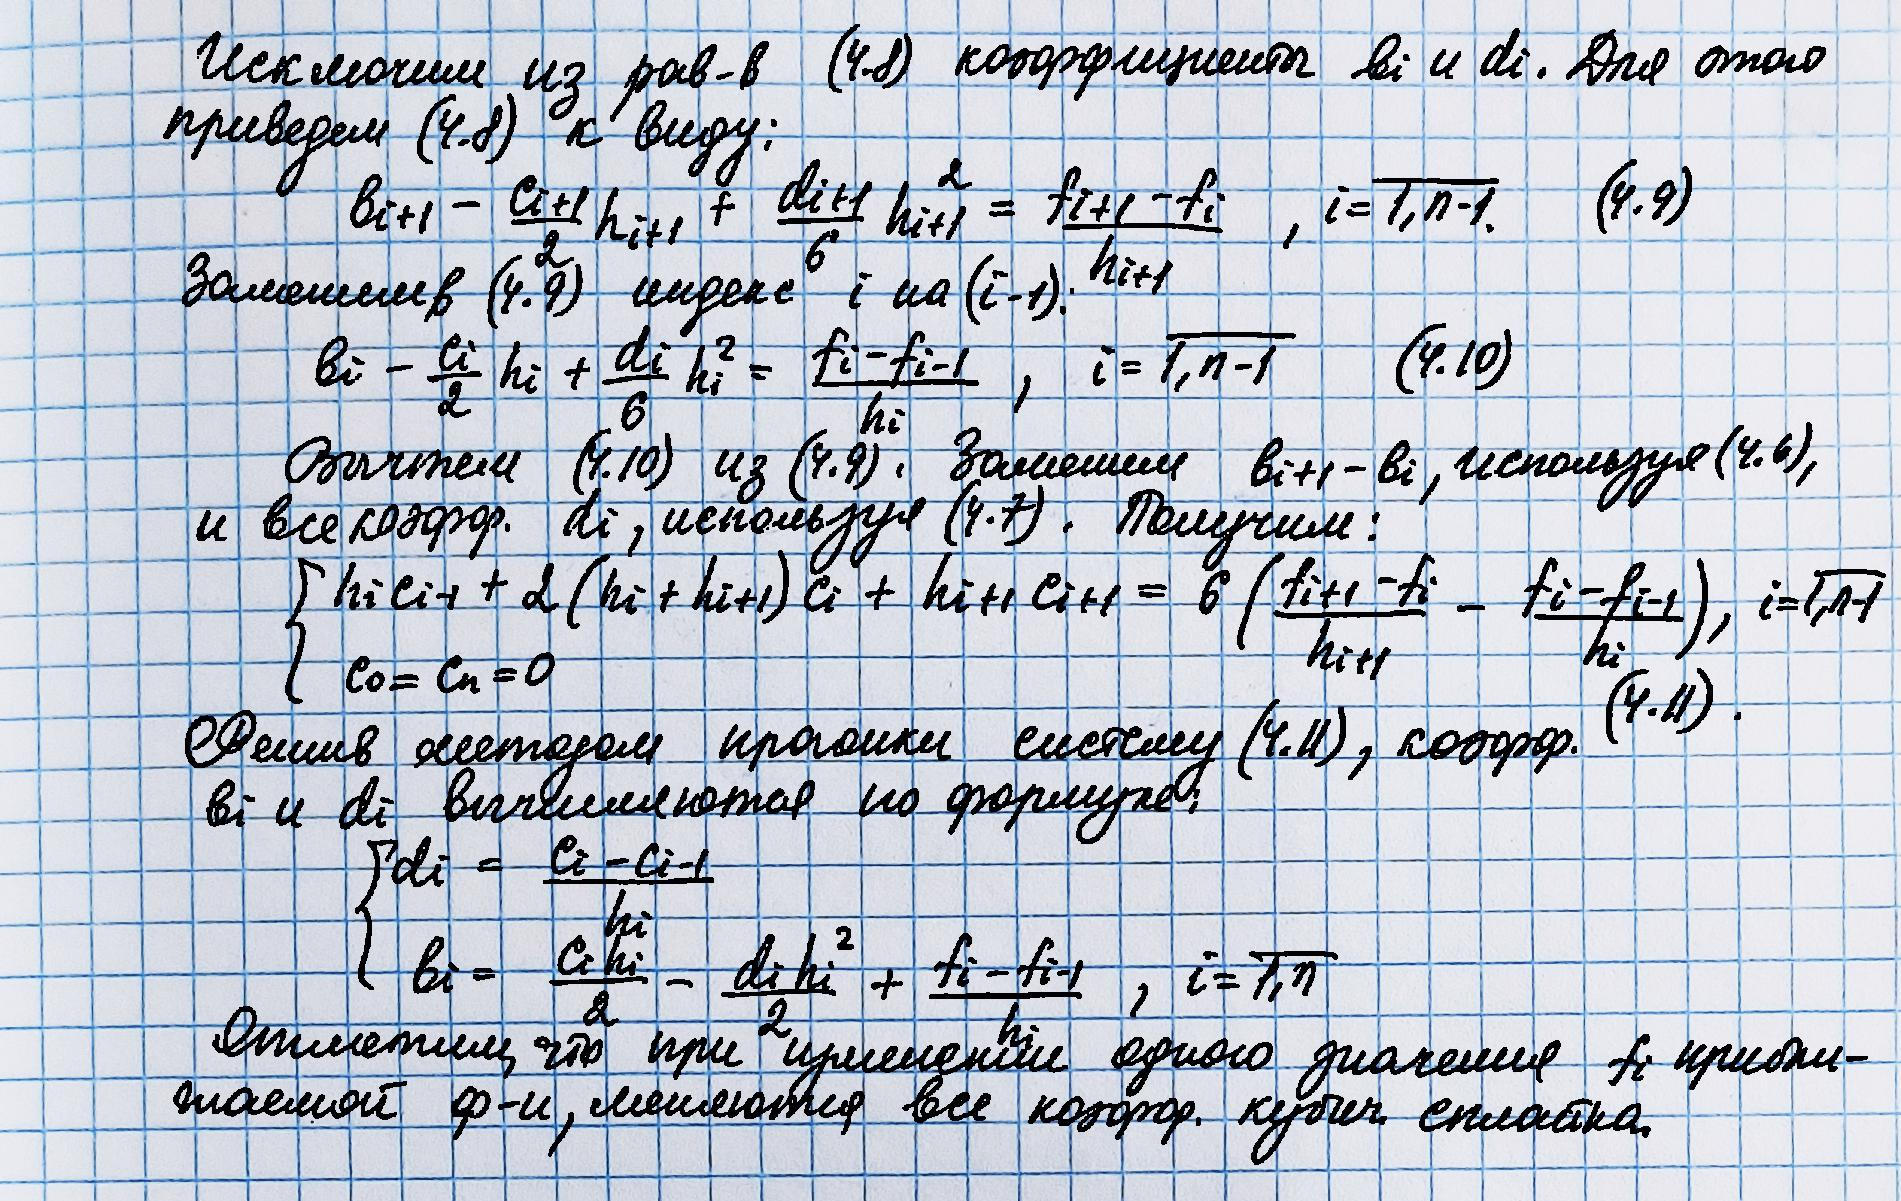 Исключим из рав-в (4.8) коэффициенты bi и di. Для этого
приведем (4.8) к виду:
b_{i+1} - \frac{c_{i+1}}{2} h_{i+1} + \frac{d_{i+1}}{6} h_{i+1}^2 = \frac{f_{i+1} - f_i}{h_{i+1}}, i = \overline{1,n-1}. (4.9)
Заменим в (4.9) индекс i на (i-1):
b_i - \frac{c_i}{2} h_i + \frac{d_i}{6} h_i^2 = \frac{f_i - f_{i-1}}{h_i}, i = \overline{1,n-1} (4.10)
Вычтем (4.10) из (4.9). Заменим b_{i+1} - b_i, используя (4.6),
и все коэфф. di, используя (4.7). Получим:
\begin{cases} h_i c_{i-1} + 2(h_i + h_{i+1}) c_i + h_{i+1} c_{i+1} = 6 \left( \frac{f_{i+1} - f_i}{h_{i+1}} - \frac{f_i - f_{i-1}}{h_i} \right), i = \overline{1,n-1} \\ c_0 = c_n = 0 \end{cases}
(4.11).
Решив методом прогонки систему (4.11), коэфф.
bi и di вычисляются по формуле:
\begin{cases} d_i = \frac{c_i - c_{i-1}}{h_i} \\ b_i = \frac{c_i h_i}{2} - \frac{d_i h_i^2}{2} + \frac{f_i - f_{i-1}}{h_i}, i = \overline{1,n} \end{cases}
Отметим, что при изменении одного значения fi прибли-
жаемой ф-и, меняются все коэфф. кубич. сплайна.